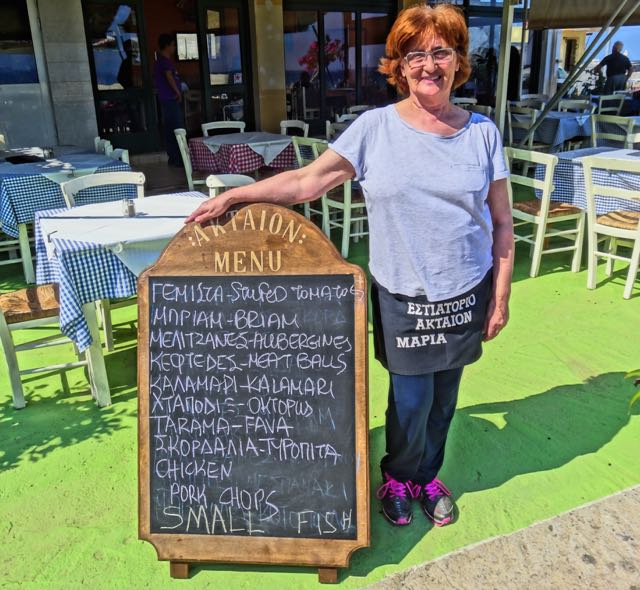 :ΑΚΤΑΙΟΝ:
MENU
ΓΕΜΙΣΤΑ-STUFED TOMATOES
ΜΠΡΙΑΜ-BRIAM
ΜΕΛΙΤΖΑΝΕΣ-AUBERGINES
ΚΕΦΤΕΔΕΣ-MEAT BALLS
ΚΑΛΑΜΑΡΙ-KALAMARI
ΧΤΑΠΟΔΙ-OKTOPUS
ΤΑΡΑΜΑ-FAVA
ΣΚΟΡΔΑΛΙΑ-ΤΥΡΟΠΙΤΑ
CHICKEN
PORK CHOPS
SMALL FISH
ΕΣΤΙΑΤΟΡΙΟ
ΑΚΤΑΙΟΝ
ΜΑΡΙΑ